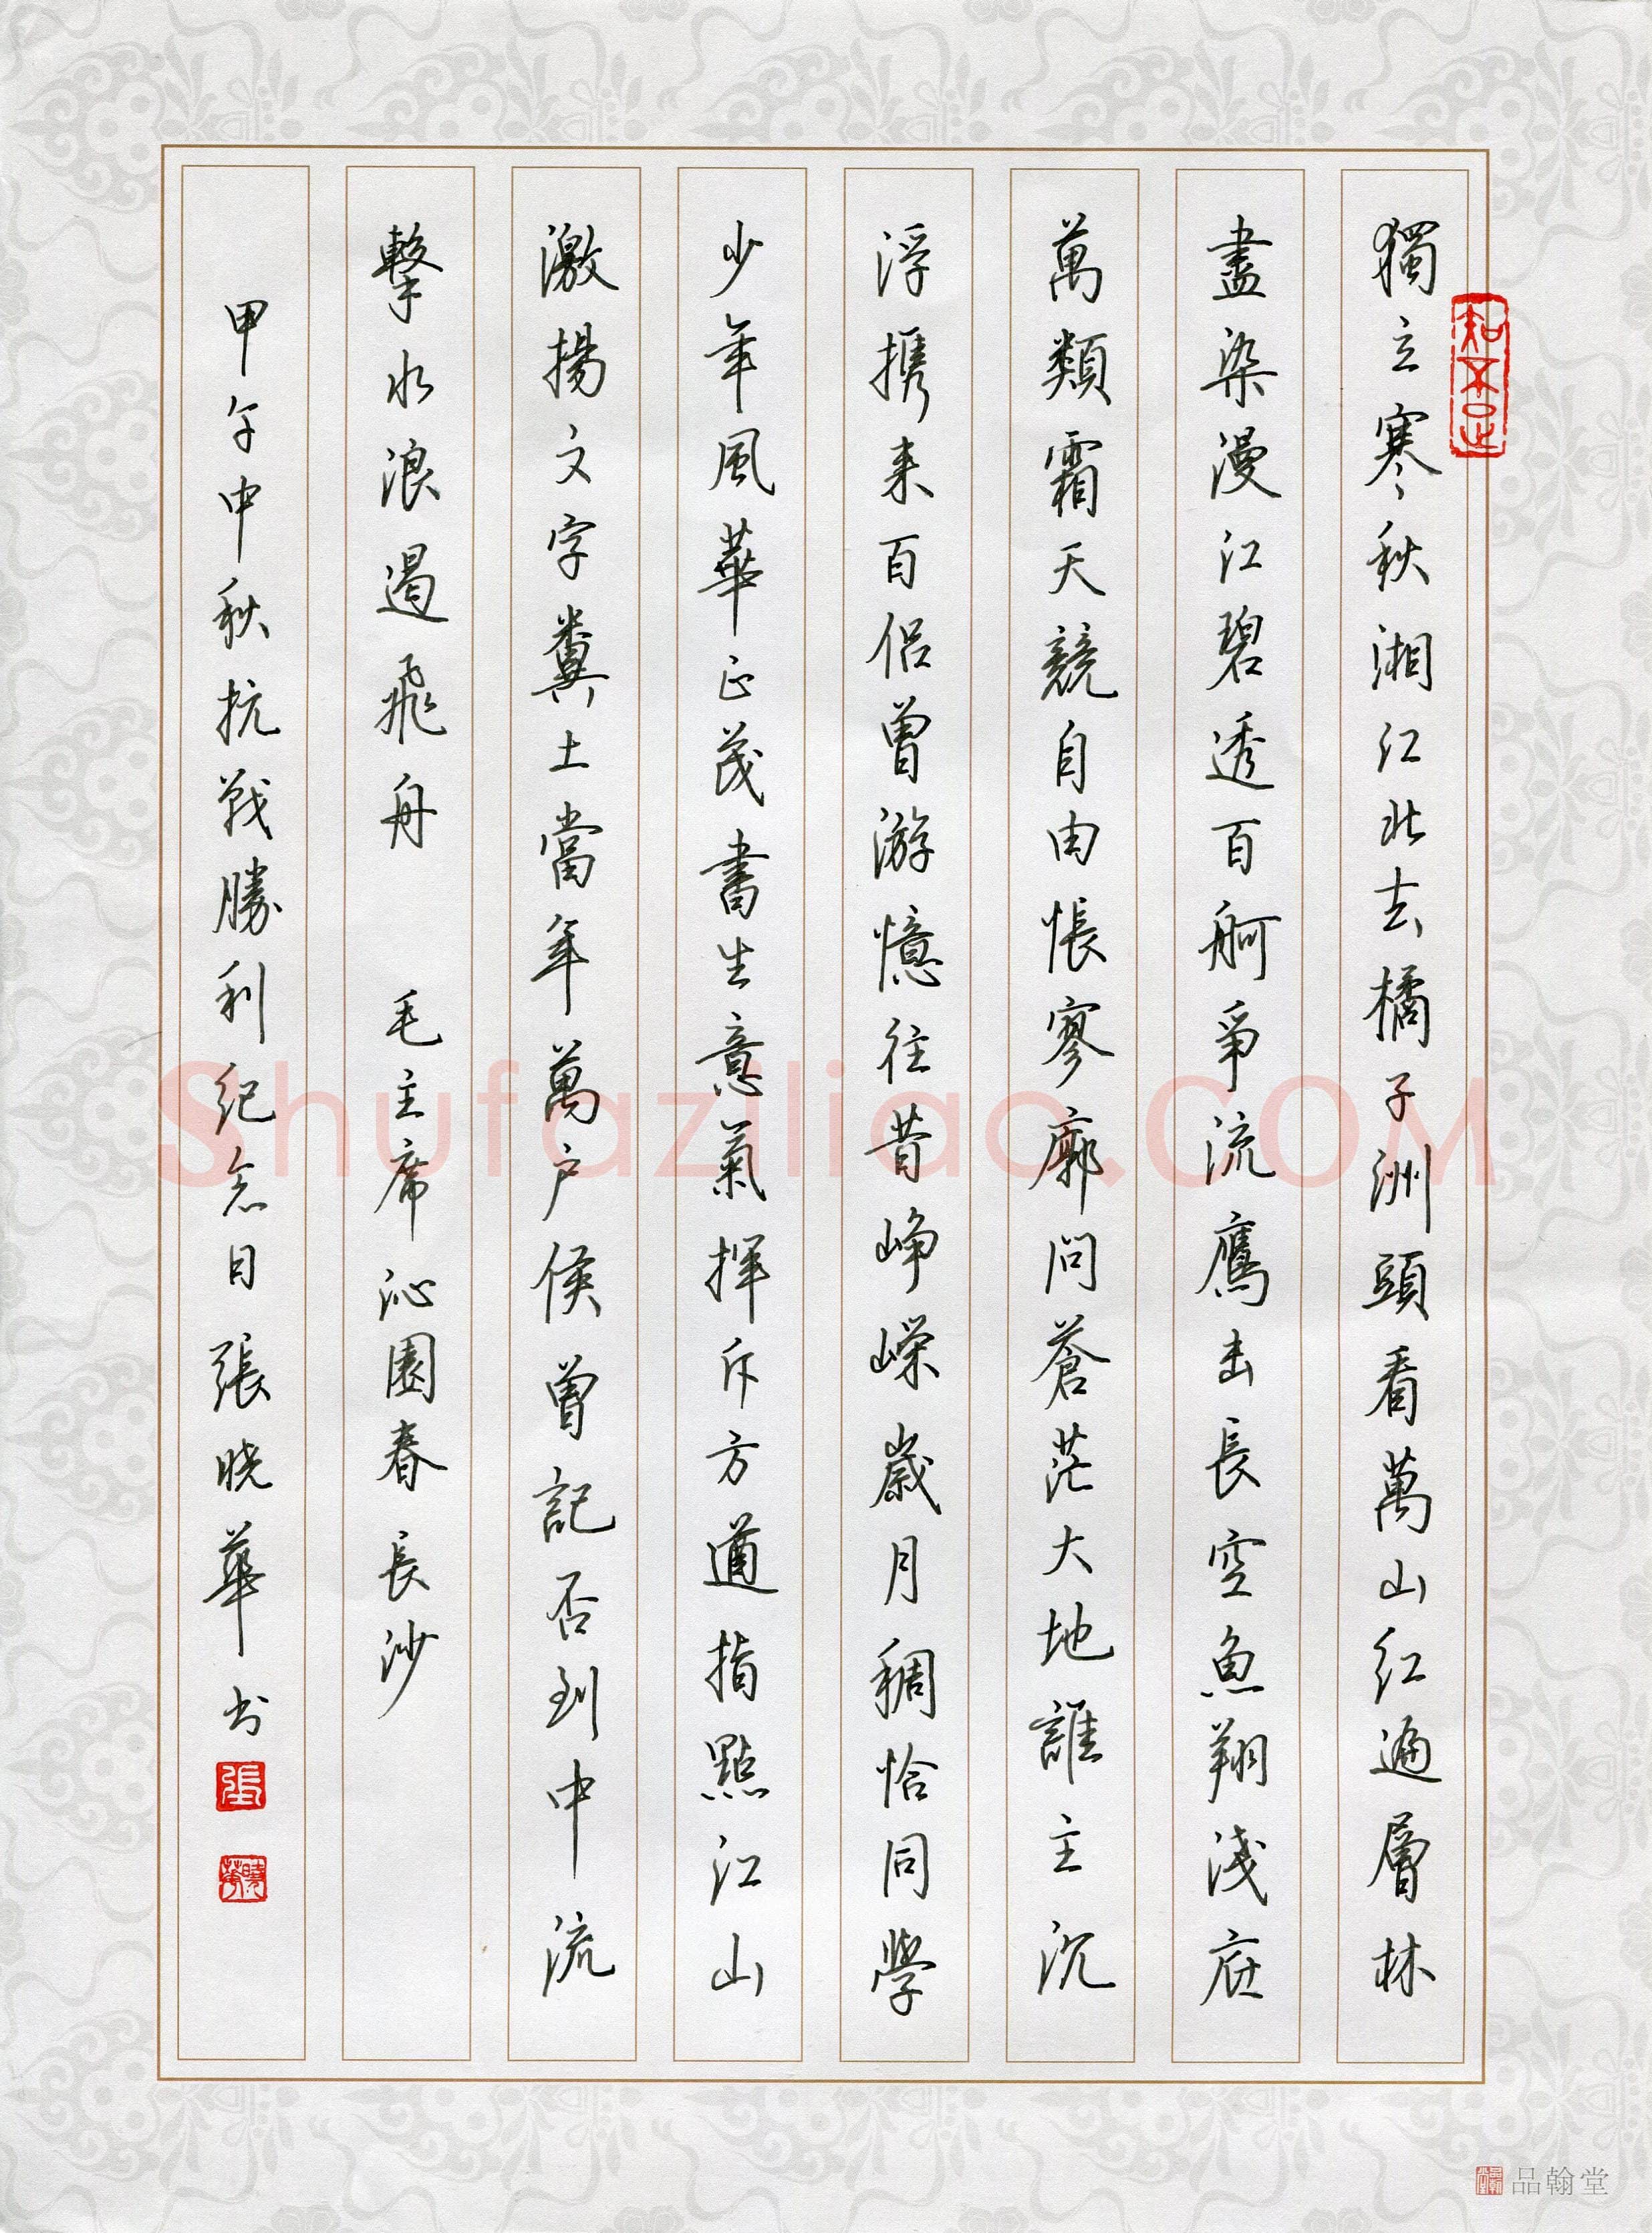 獨立寒秋湘江北去橘子洲頭看萬山紅遍層林
盡染漫江碧透百舸爭流鷹击長空魚翔淺底
萬類霜天競自由悵寥廓問蒼茫大地誰主沉
浮携来百侣曾游憶往昔崢嶸歲月稠恰同學
少年風華正茂書生意氣揮斥方遒指點江山
激揚文字糞土當年萬户侯曾記否到中流
擊水浪遏飛舟 毛主席沁園春長沙
甲午中秋抗戰勝利纪念日張晓華书
知不足
張
曉華
Shufaziliao.COM
品翰堂